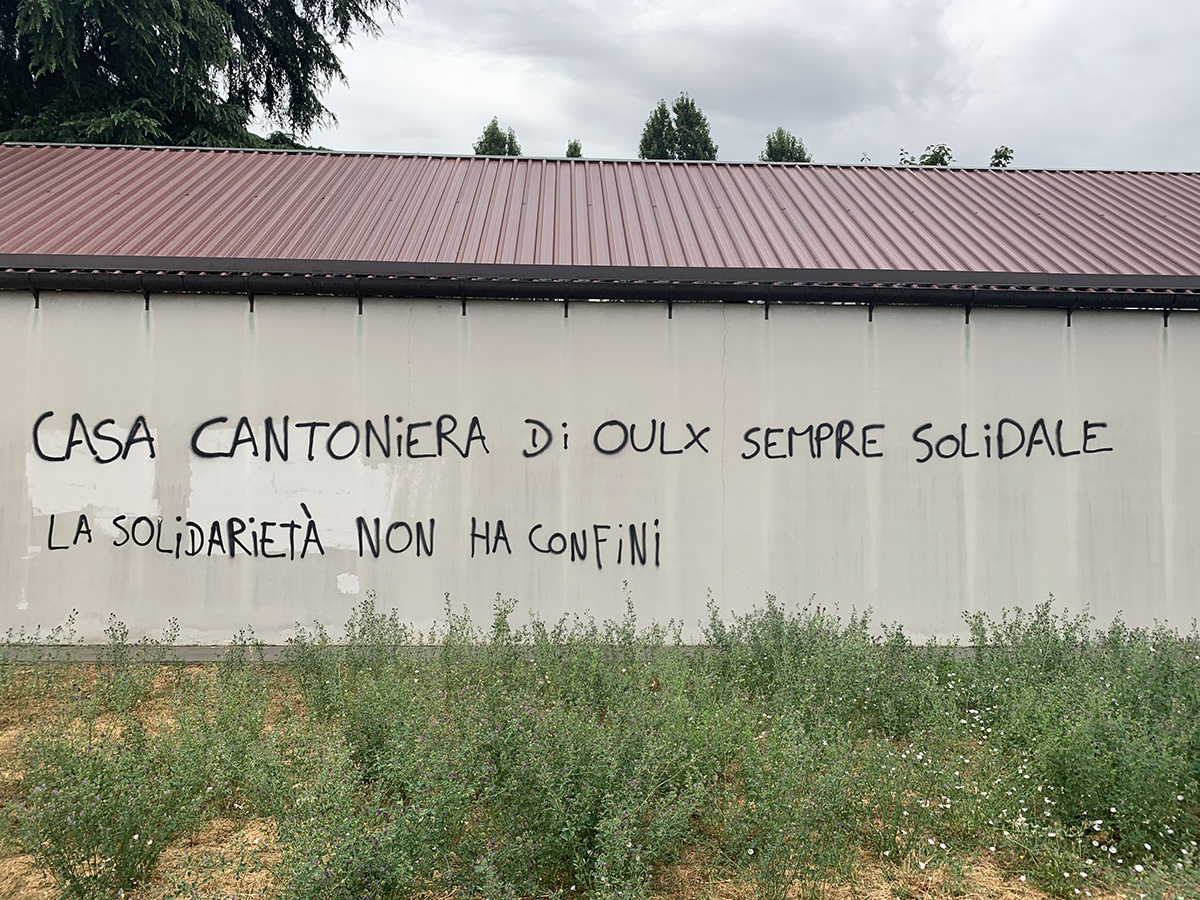 CASA CANTONiERA Di OULX SEMPRE SOLiDALE
LA SOLiDARiETÀ NON HA CONFiNi